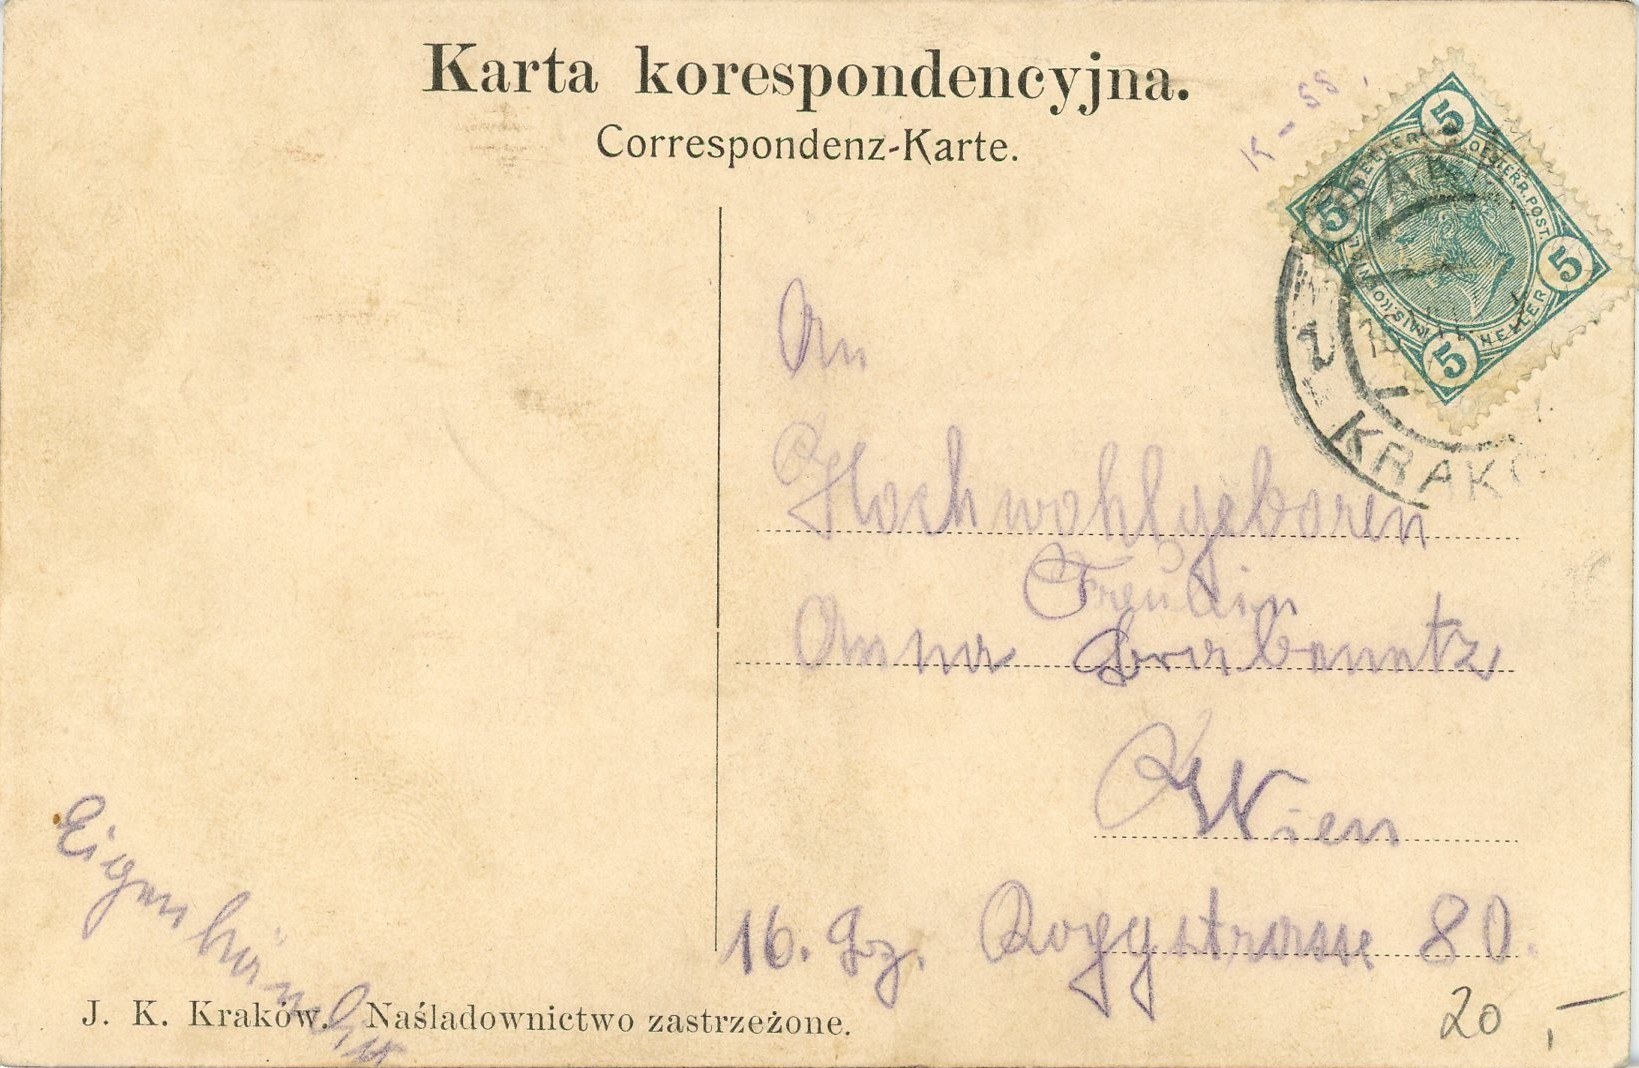 Karta korespondencyjna.
Correspondenz-Karte.
K-55.
5 HELLER 5
OESTERR. POST.
5 HELLER 5
KRAK
2
An
Hochwohlgeboren
Freulein
Anna
Wien
16. Bz. Roggstrasse 80.
Eigenhändig
J. K. Kraków. Naśladownictwo zastrzeżone.
20,-